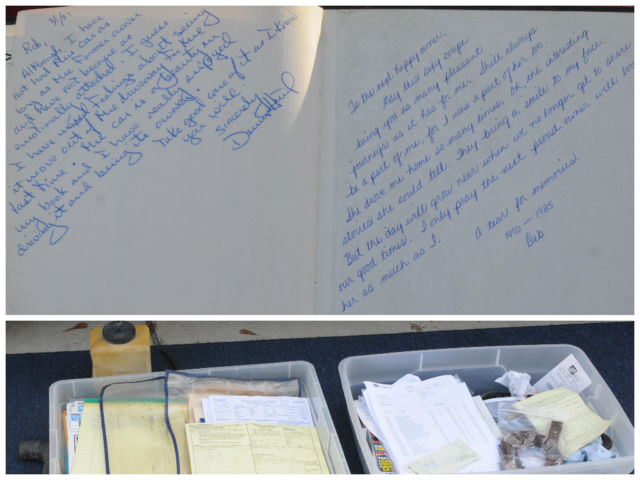 4/87
Rob,
Although I have
not had this car as
long as the former owner
and have not become as
emotionally attached, I guess
I have mixed feelings about seeing
it move out of the driveway for the
last time. This car is a beauty in
my book and I have really enjoyed
driving it and being its owner.
Take good care of it as I know
you will.
Sincerely,
To the next happy owner,
May this sexy coupe
bring you as many pleasant
journeys as it has for me. She'll always
be a part of me for I was a part of her too.
She drove me home so many times. Oh, the interesting
stories she could tell. They bring a smile to my face.
But the day will grow near when we no longer get to share
our good times. I only pray the next proud owner will love
her as much as I.
A tear for memories.
1970-1985
Deb